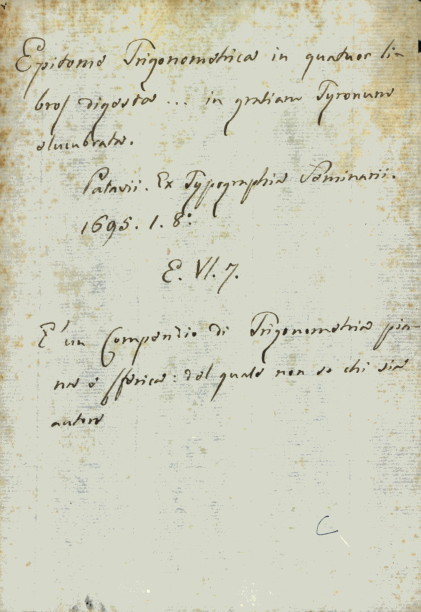 Epitome Trigonometrica in quatuor li-
bros digesta ... in gratiam Tyronum
elucubrata.
Patavii. Ex Typographia Seminarii.
1695. 1. 8º
E. VI. 7.
È un Compendio di Trigonometria pia-
na e sferica: del quale non so chi sia
autore
C